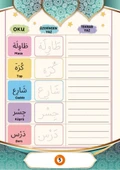 OKU
ÜZERİNDEN YAZ
TEKRAR YAZ
طَاوِلَة
طَاوِلَة
Masa
كُرَة
كُرَة
Top
شَارِع
شَارِع
Cadde
جِسْر
جِسْر
Köprü
دَرْس
دَرْس
Ders